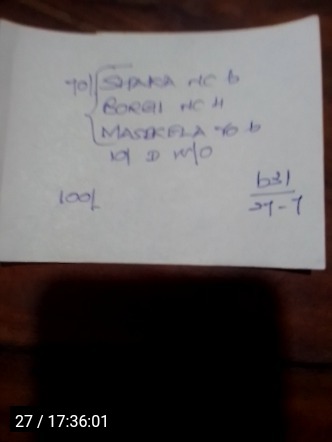 70/ SHAKA HC 6
BORGI HC 4
MASEKELA 40 6
10/ D W/O
100/
631
27-7
27 / 17:36:01